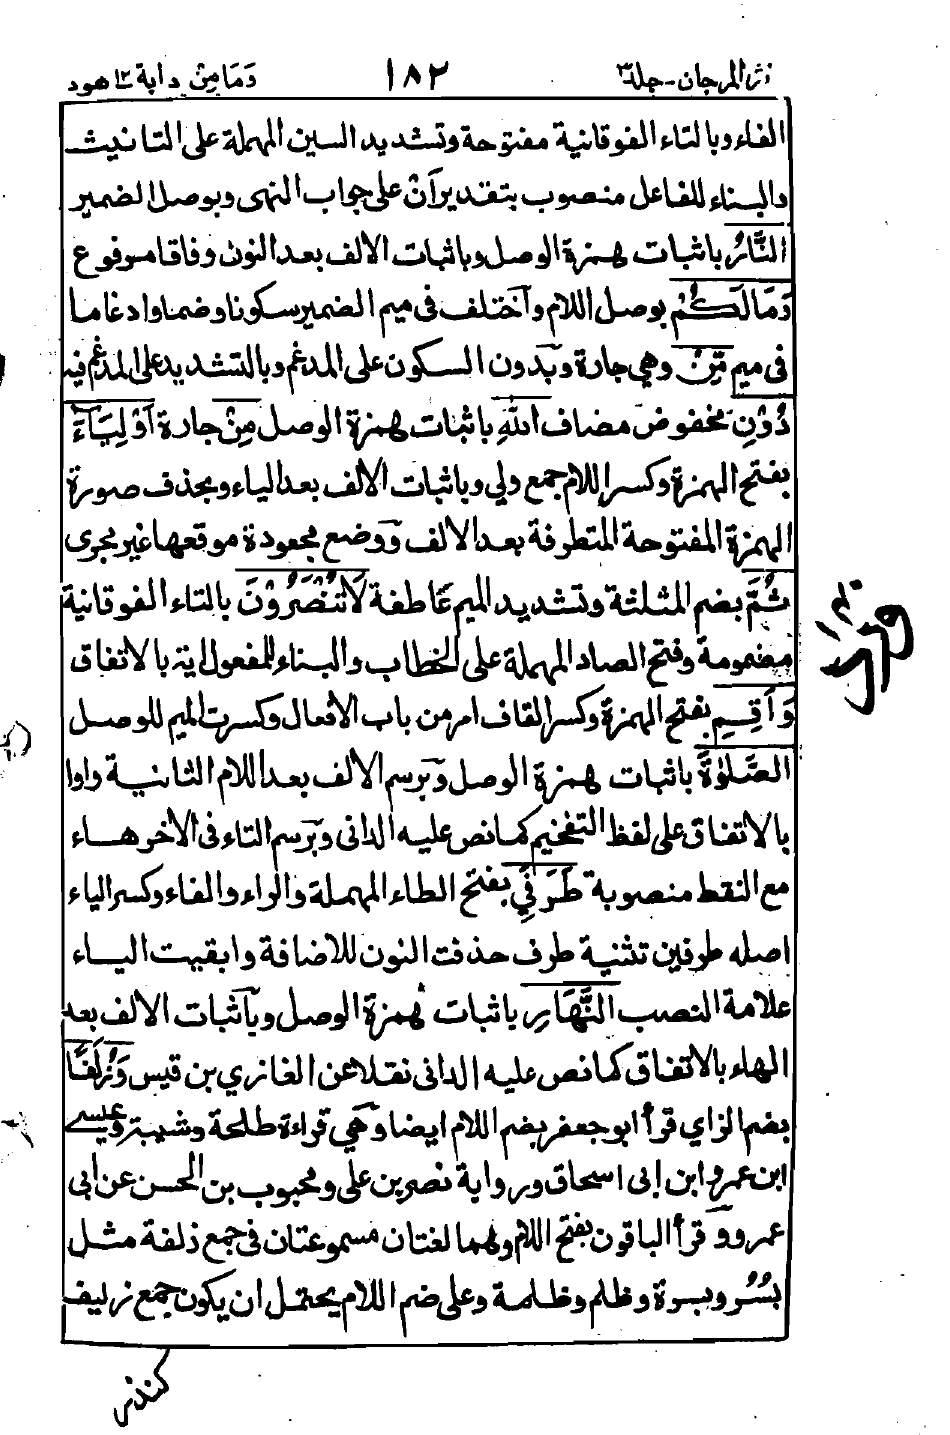 نثر المرجان - جلد ٣
١٨٢
وَمَا مِنْ دابة ١٢ هود
الفاء وبالتاء الفوقانية مفتوحة وتشديد السين المهملة على التانيث
والبناء للفاعل منصوب بتقدير أن على جواب النهى وبوصل الضمير
النَّارُ باثبات همزة الوصل وباثبات الالف بعد النون وفاقا مرفوع
وَمَا لَكُمْ بوصل اللام وآختلف فى ميم الضمير سكونا وضما وادغاما
فى ميم مِّنْ وهي جارة وبدون السكون على المدغم وبالتشديد على المدغم فيه
دُوْنِ مخفوض مضاف اللهِ باثبات همزة الوصل مِنْ جارة أَوْلِيَاءَ
بفتح الهمزة وكسر اللام جمع ولي وباثبات الالف بعد الياء وبحذف صورة
الهمزة المفتوحة المتطرفة بعد الالف ووضع مجعودة موقعها غير مجرى
ثُمَّ بضم المثلثة وتشديد الميم عاطفة لَا تُنْصَرُوْنَ بالتاء الفوقانية
مضمومة وفتح الصاد المهملة على الخطاب والبناء للمفعول اية بالاتفاق
وَأَقِمِ بفتح الهمزة وكسر القاف امر من باب الافعال وكسرت الميم للوصل
الصَّلٰوةَ باثبات همزة الوصل وبرسم الالف بعد اللام الثانية واوا
بالاتفاق على لفظ التفخيم كما نص عليه الدانى وبرسم التاء فى الاخر هاء
مع النقط منصوبة طَرَفَيِ بفتح الطاء المهملة والراء والفاء وكسر الياء
اصله طرفين تثنية طرف حذفت النون للاضافة وابقيت الياء
علامة النصب النَّهَارِ باثبات همزة الوصل وبآثبات الالف بعد
الهاء بالاتفاق كما نص عليه الدانى نقلا عن الغازي بن قيس وَزُلَفًا
بضم الزاي قرأ ابو جعفر بضم اللام ايضا وهي قراءة طلحة وشيبة وعيسى
ابن عمرو وابن ابى اسحاق ورواية نصر بن على ومحبوب بن الحسن عن ابى
عمرو وقرأ الباقون بفتح اللام وهما لغتان مسموعتان فى جمع زلفة مثل
بُسُر وبسرة وظلم وظلمة وعلى ضم اللام يحتمل ان يكون جمع زليف